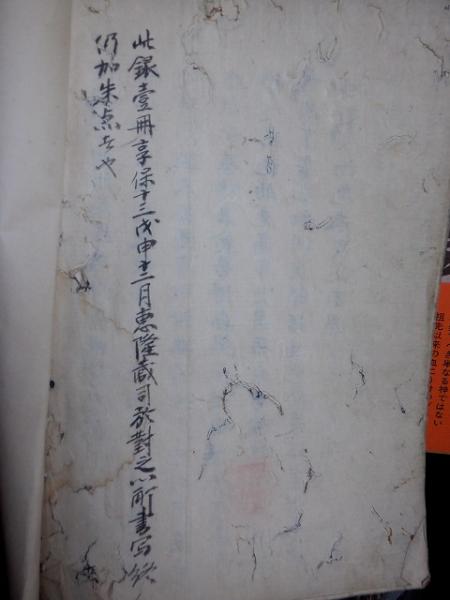 此録壹冊享保十三戊申十二月恵隆蔵司於對之以所書写終
仍加朱点者也
る単なる神ではない
祖先以来の血に